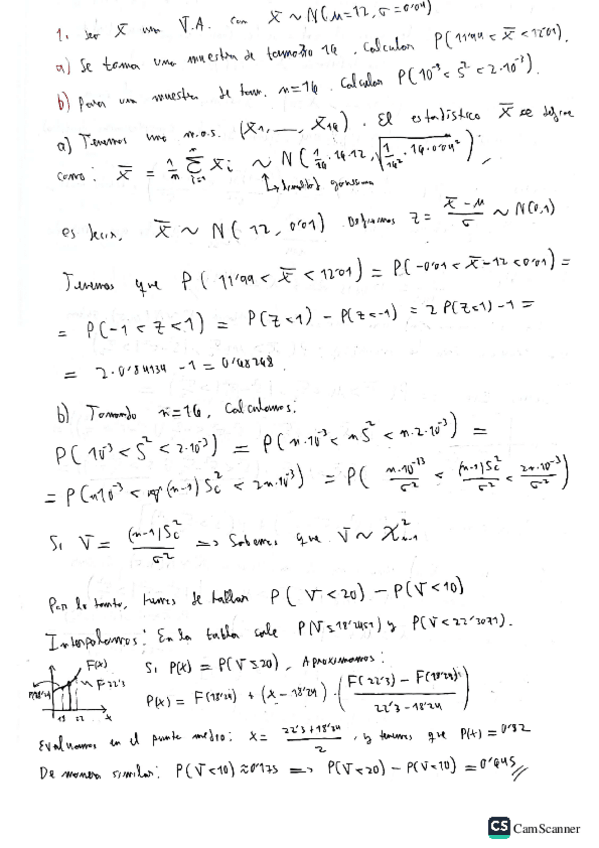 1. Sea X una V.A. con X ~ N(μ=12, σ=0'04)
a) Se toma una muestra de tamaño 16. Calcular P(11'99 < X̄ < 12'01).
b) Para una muestra de tam. n=16. Calcular P(10⁻³ < S² < 2·10⁻³).
a) Tenemos una m.a.s. (X₁, __, X₁₆). El estadístico X̄ se define
como: X̄ = 1/n Σᵢ₌₁ⁿ Xᵢ ~ N(1/16 · 16·12, √(1/16² · 16·0'04²));
es decir, X̄ ~ N(12, 0'01) Definimos Z = (X̄ - μ)/σ ~ N(0,1)
Tenemos que P(11'99 < X̄ < 12'01) = P(-0'01 < X̄ - 12 < 0'01) =
= P(-1 < Z < 1) = P(Z<1) - P(Z<-1) = 2P(Z<1) - 1 =
= 2·0'84134 - 1 = 0'68268.
b) Tomando n=16, calculamos:
P(10⁻³ < S² < 2·10⁻³) = P(n·10⁻³ < nS² < n·2·10⁻³) =
= P(n10⁻³ < (n-1)Sc² < 2n·10⁻³) = P(n·10⁻³/σ² < (n-1)Sc²/σ² < 2n·10⁻³/σ²)
Si V = (n-1)Sc²/σ² => Sabemos que V ~ χ²ₙ₋₁
Por lo tanto, hemos de hallar P(V < 20) - P(V < 10)
Interpolamos: En la tabla sale P(V ≤ 18'2451) y P(V < 22'3071).
F(x)
F22'3
x
Si P(x) = P(V ≤ 20), Aproximamos:
P(x) = F(18'24) + (x - 18'24) · ((F(22'3) - F(18'24))/(22'3 - 18'24))
Evaluamos en el punto medio: x = (22'3 + 18'24)/2, y tenemos que P(x) = 0'82
De manera similar: P(V<10) ≈ 0'175 => P(V<20) - P(V<10) = 0'645
CS CamScanner